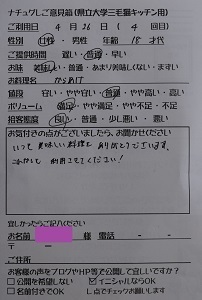 ナチュグレご意見箱(県立大学三毛猫キッチン用)
ご利用日 4月 26日 ( 4 回目)
性別 女性・男性 年齢 18 才代
ご提供時間 遅い・普通・早い
お味 美味しい・普通・あまり美味しくない・まずい
お料理名
値段 安い・やや安い・普通・やや高い・高い
ボリューム 満足・やや満足・やや不足・不足
接客態度 良い・普通・少し悪い・悪い
お気付きの点がございましたら、お聞かせください
いつも美味しい料理を ありがとうございます。
これからも 利用させてください!
宜しかったらご記入ください
お名前 様 電話 - -
〒 -
ご住所
お客様の声をブログやHP等で公開して宜しいですか?
□公開を希望しない ☑イニシャルならOK
□名前付きでOK レ点でチェックお願いします